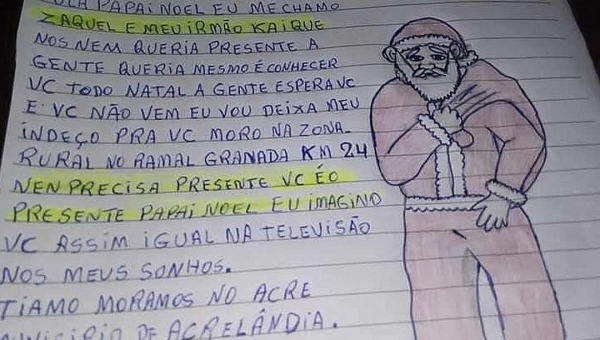 OLA PAPAI NOEL EU ME CHAMO
ZAQUEL E MEU IRMÃO KAIQUE
NOS NEM QUERIA PRESENTE A
GENTE QUERIA MESMO É CONHECER
VC TODO NATAL A GENTE ESPERA VC
E VC NÃO VEM EU VOU DEIXA MEU
INDEÇO PRA VC MORO NA ZONA
RURAL NO RAMAL GRANADA KM 24
NEN PRECISA PRESENTE VC É O
PRESENTE PAPAI NOEL EU IMAGINO
VC ASSIM IGUAL NA TELEVISÃO
NOS MEUS SONHOS.
TIAMO MORAMOS NO ACRE
MUNICIPIO DE ACRELÂNDIA.